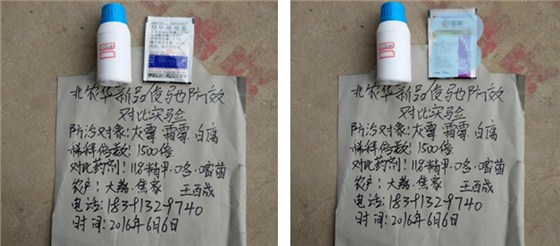 北农华新品俊驰防效
对比实验
防治对象:灰霉 霜霉 白腐
稀释倍数:1500倍
对比药剂:118精甲·咯·嘧菌
农户:大荔·焦家 王西成
电话:183-9132-9740
时间:2016年6月6日
北农华新品俊驰防效
对比实验
防治对象:灰霉 霜霉 白腐
稀释倍数:1500倍
对比药剂:118精甲·咯·嘧菌
农户:大荔·焦家 王西成
电话:183-9132-9740
时间:2016年6月6日